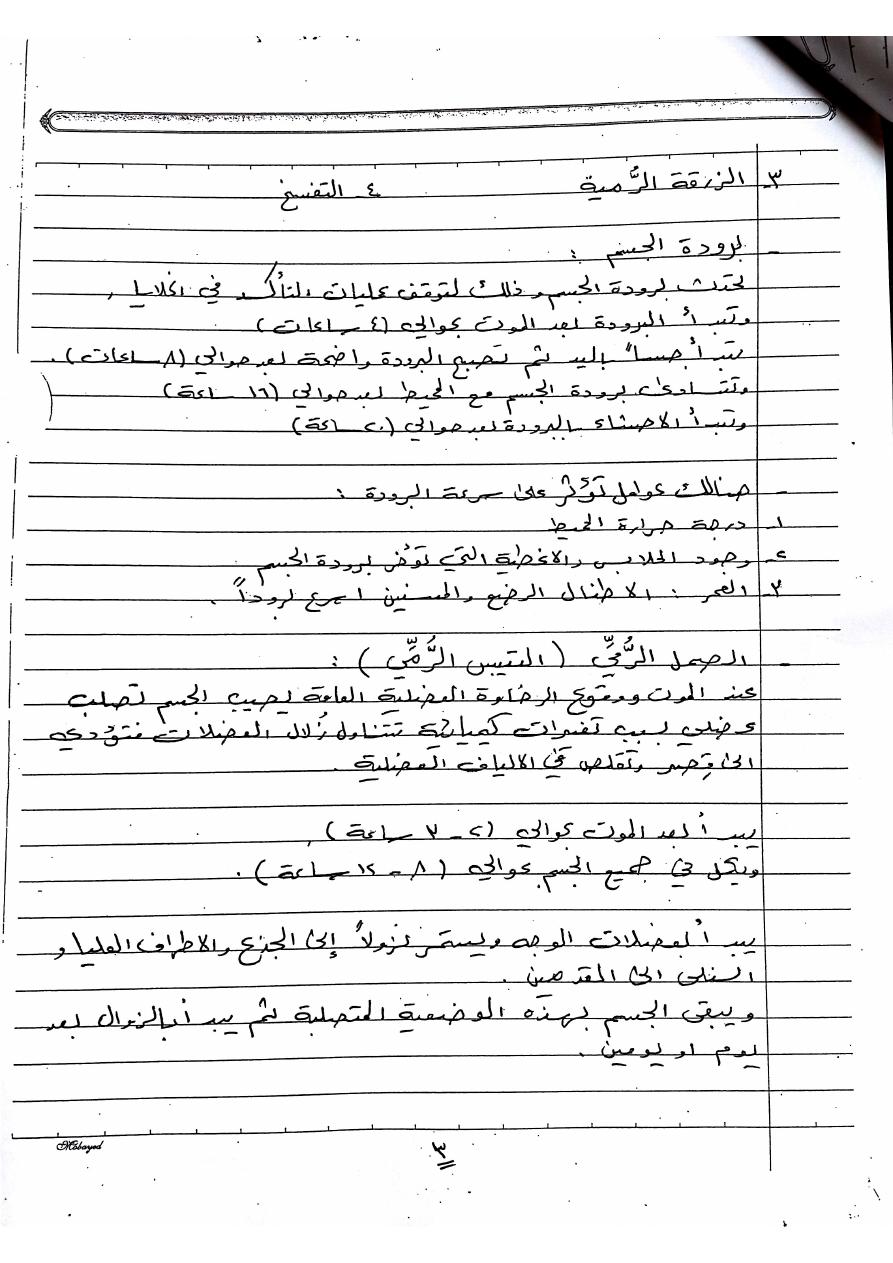 ٣- الزرقة الرُّمية    ٤- التفسخ
- برودة الجسم :
تحدث برودة الجسم وذلك لتوقف عمليات التأكسد في الخلايا ,
وتبدأ البرودة بعد الموت بحوالي (٤ ساعات)
يتبدأ جسماً باليد ثم تصبح البرودة واضحة بعد حوالي (٨ ساعات) .
وتتساوى برودة الجسم مع المحيط بعد حوالي (١٦ ساعة)
وتبدأ الاحشاء بالبرودة بعد حوالي (٢٠ ساعة)
- هنالك عوامل تؤثر على سرعة البرودة :
١- درجة حرارة المحيط
٢- وجود الملابس والاغطية التي تؤخر برودة الجسم
٣- العمر : الاطفال الرضع والمسنين اسرع بروداً .
- الصمل الرُّمّي ( التيبس الرُّمّي ) :
عند الموت ووقوع الرخاوة العضلية العامة يصيب الجسم تصلب
عضلي بسبب تغيرات كيميائية تتناول زلال العضلات فتؤدي
الى قصر وتقلص في الالياف العضلية .
يبدأ بعد الموت بحوالي (٢ - ٣ ساعة) ,
ويكمل في جميع الجسم بحوالي ( ٨ - ١٢ ساعة ) .
يبدأ بعضلات الوجه ويستمر نزولاً إلى الجذع والاطراف العليا و
السفلى الى القدمين .
ويبقى الجسم بهذه الوضعية المتصلبة ثم يبدأ بالزوال بعد
يوم او يومين .
Mobayed
٣